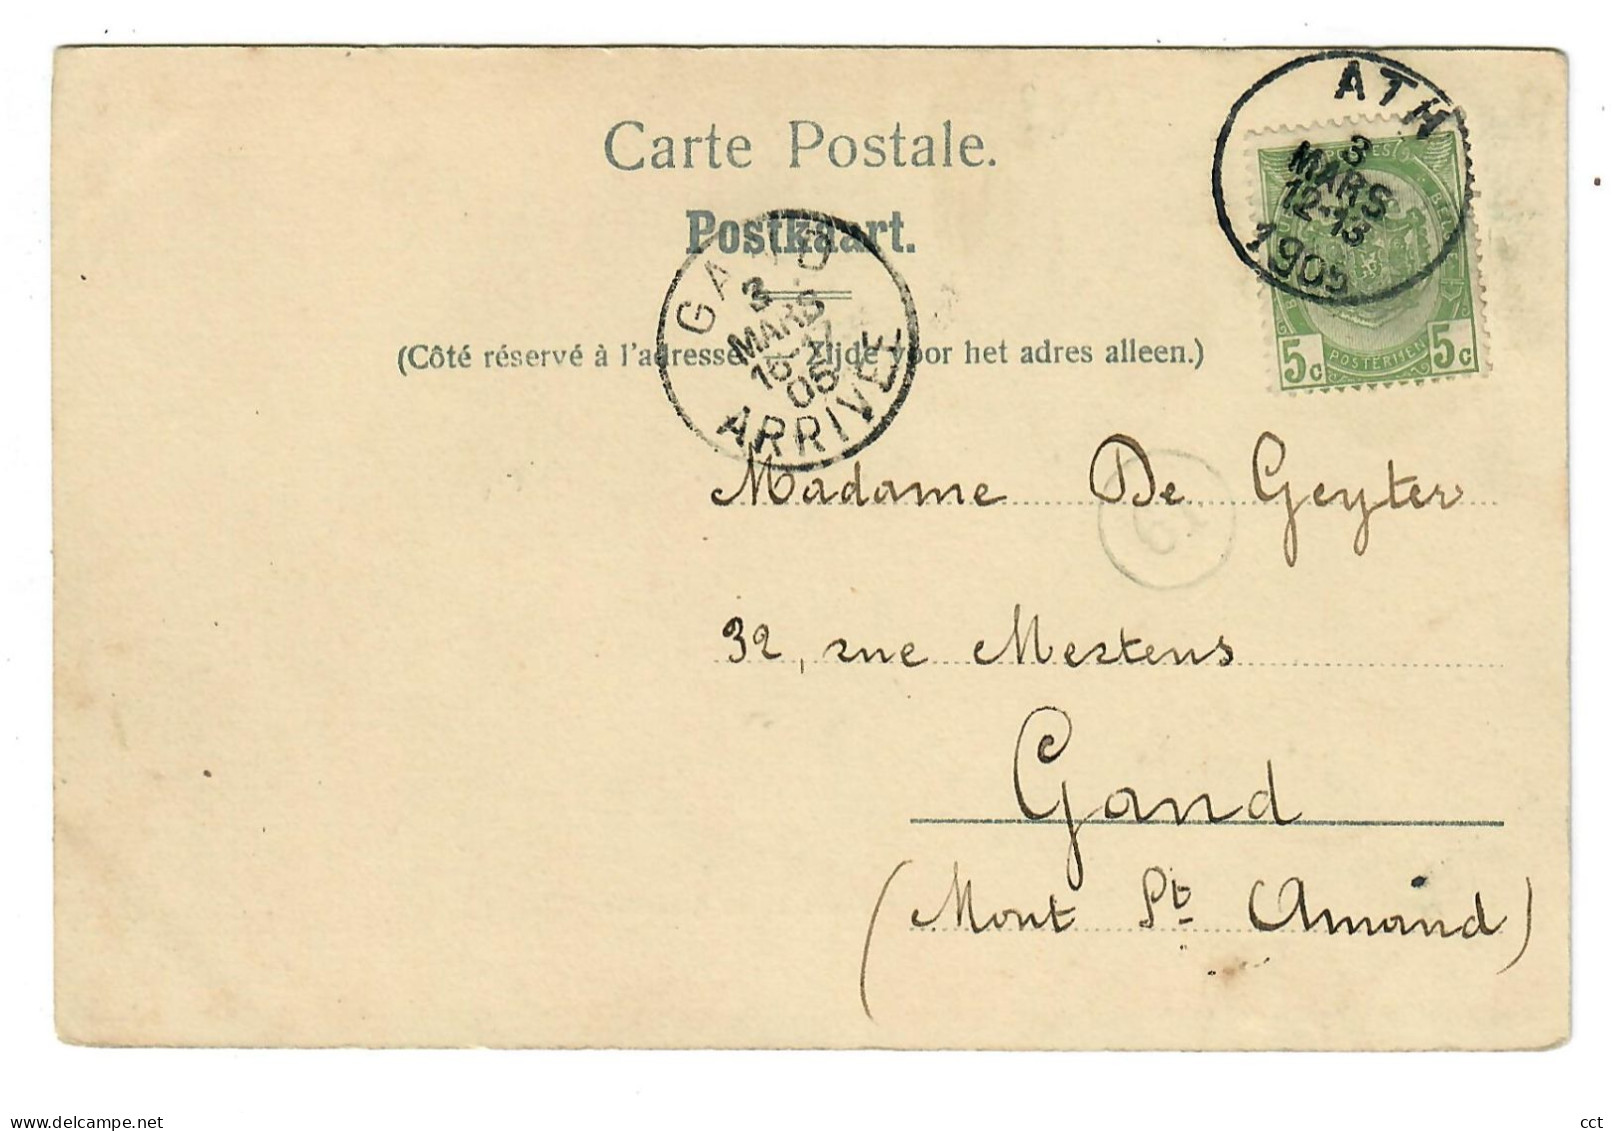 Carte Postale.
Postkaart.
(Côté réservé à l'adresse. — Zijde voor het adres alleen.)
ATH
3
MARS
12-13
1905
POSTES
POSTERIJEN
5c 5c
GAND
3
MARS
05
ARRIVÉE
Madame De Geyter
32, rue Mertens
Gand
(Mont St Amand)
www.delcampe.net
cct